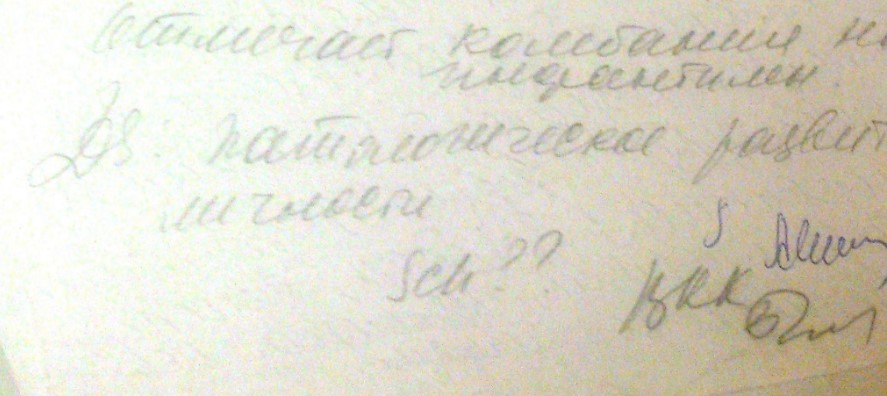 Отмечает колебания н
инфантилен.
Ds: патологическое развит
личности
Sch??
ВКК